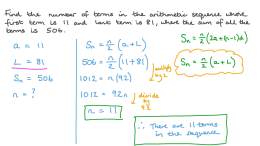 Find the number of terms in the arithmetic sequence where
first term is 11 and last term is 81, where the sum of all the
terms is 506.
a = 11
L = 81
Sₙ = 506
n = ?
Sₙ = n/2 (a+L)
506 = n/2 (11+81)
1012 = n(92)
1012 = 92n
n = 11
multiply by 2
divide by 92
Sₙ = n/2 (2a+(n-1)d)
Sₙ = n/2 (a+L)
∴ There are 11 terms
in the sequence